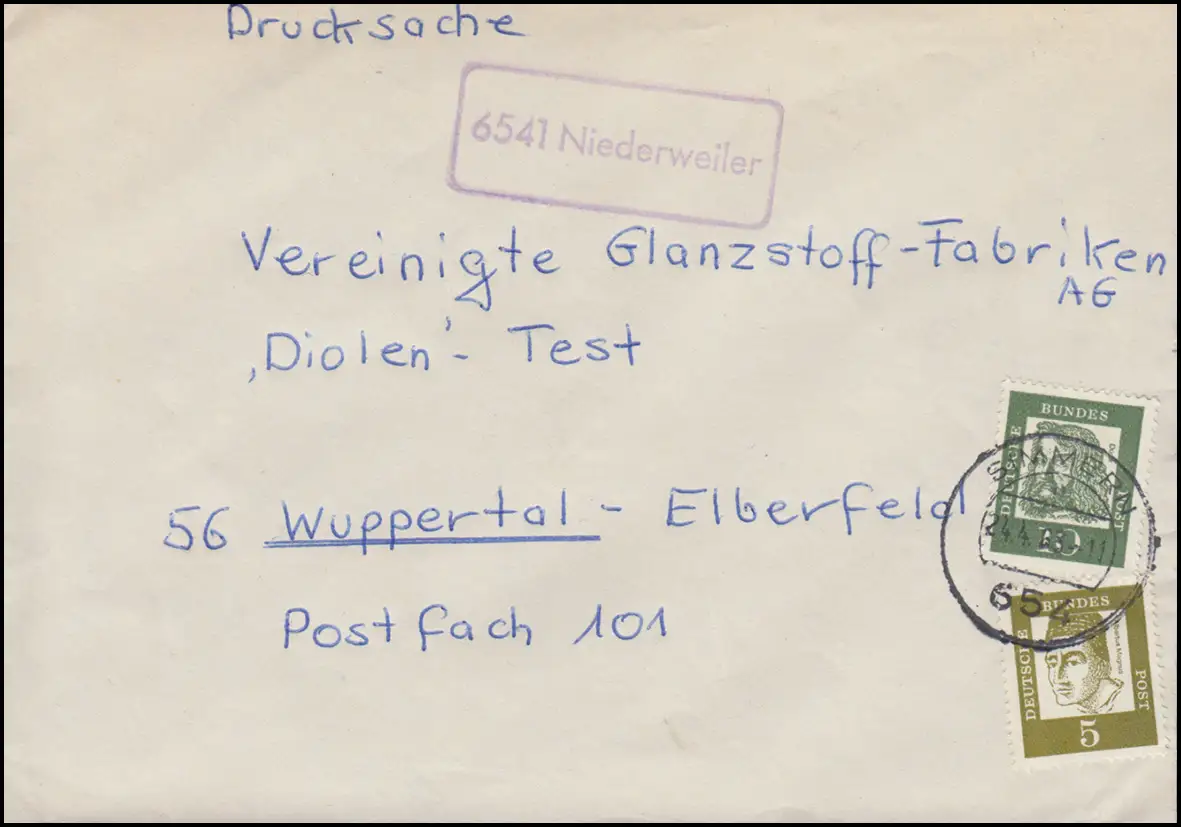 Drucksache
6541 Niederweiler
Vereinigte Glanzstoff-Fabriken
AG
‚Diolen'- Test
56 Wuppertal - Elberfeld
Postfach 101
DEUTSCHE BUNDES POST
10
SIMMERN
24.4.63-11
654
DEUTSCHE BUNDES POST
Albertus Magnus
5